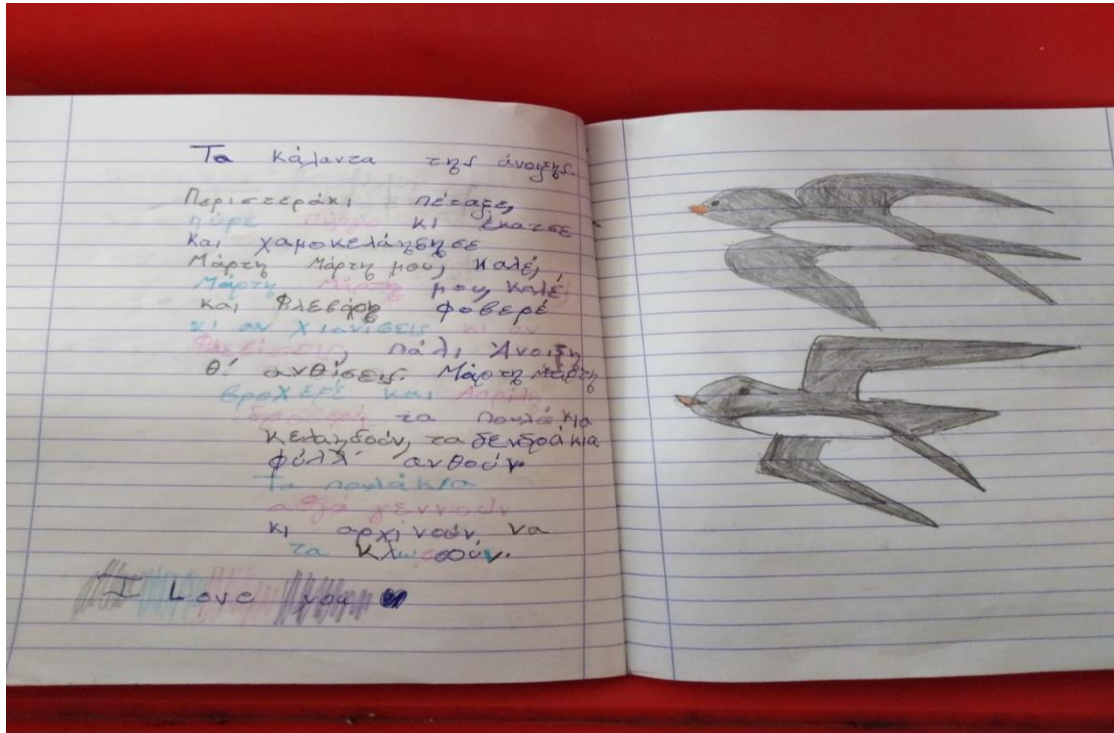 Τα κάλαντα της άνοιξης.
Περιστεράκι πέταξε,
πύρε πύργο κι έκατσε
και χαμοκελάηδησε
Μάρτη Μάρτη μου, καλέ,
Μάρτη Μάρτη μου, καλέ
και Φλεβάρη φοβερέ
κι αν χιονίσεις κι αν
Φλεβίσεις, πάλι Άνοιξη
θ' ανθίσεις. Μάρτη Μάρτη
βροχερέ και Απρίλη
δροσερέ, τα πουλάκια
κελαηδούν, τα δενδράκια
φύλλ' ανθούν.
Τα πουλάκια
αβγά γεννούν
κι αρχινούν να
τα κλωσσούν.
I Love you